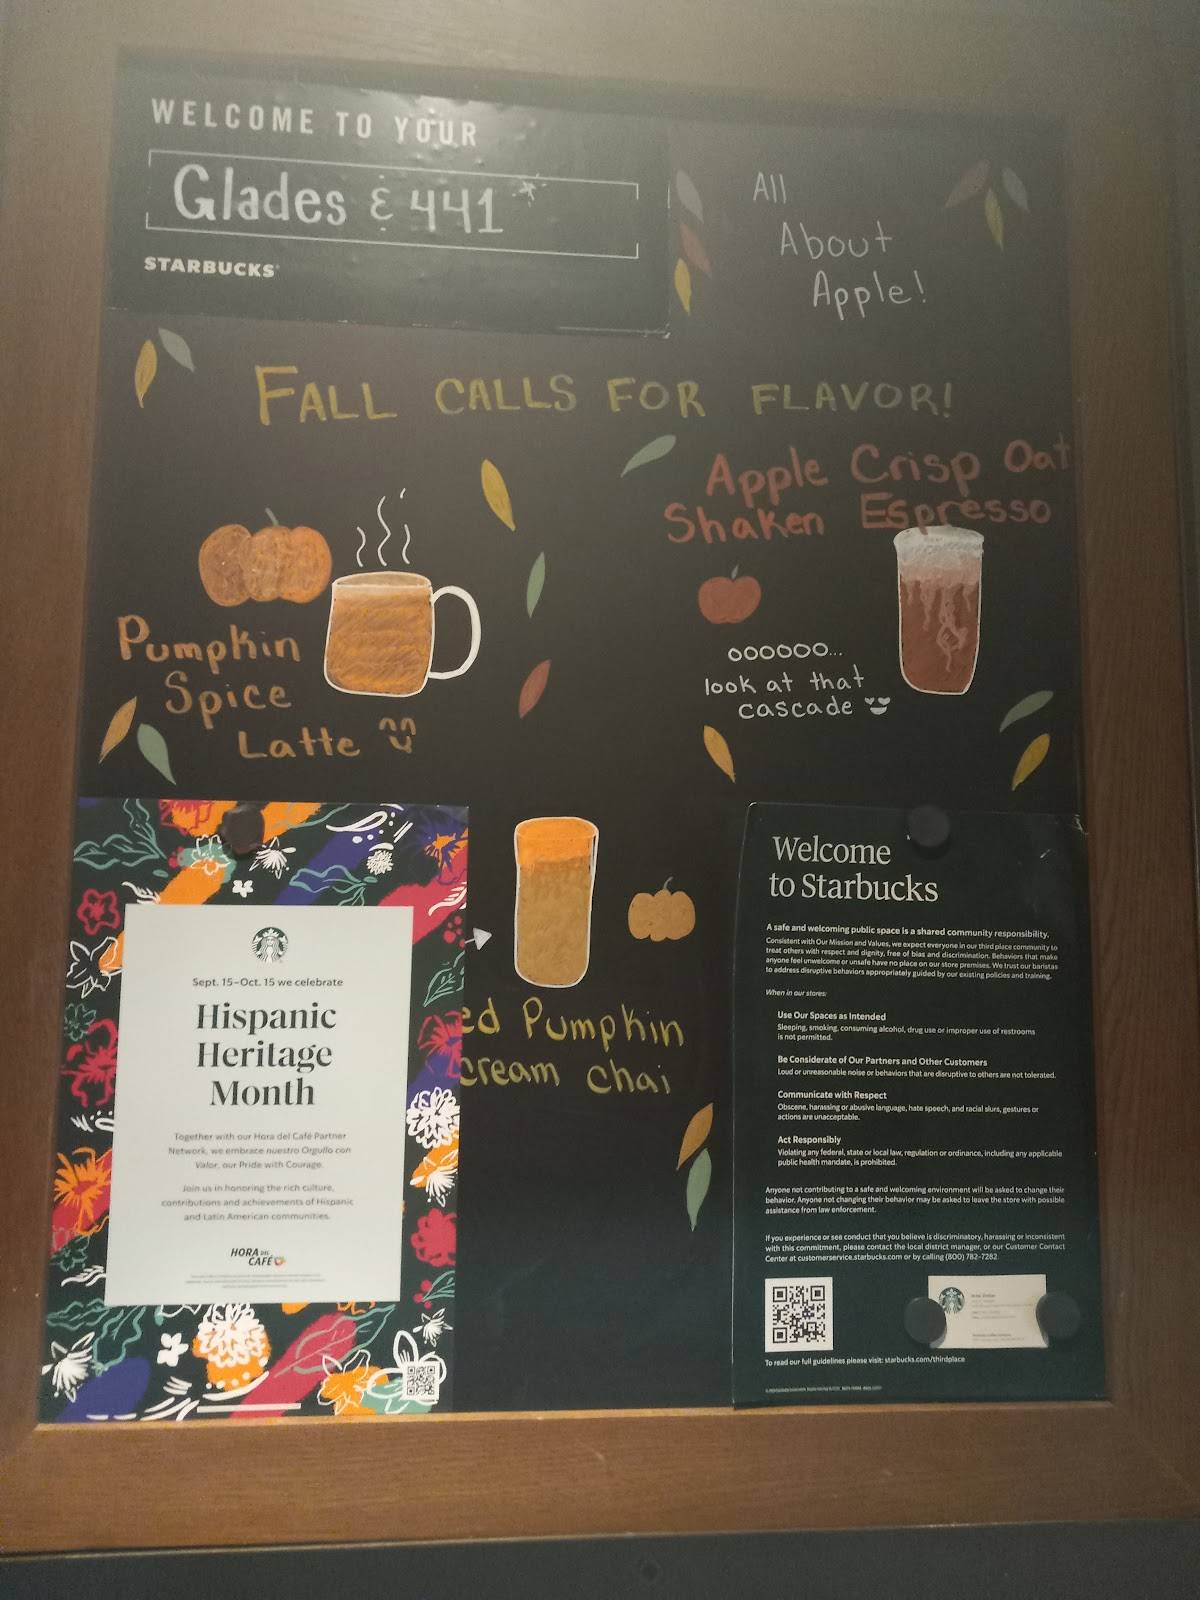 WELCOME TO YOUR
Glades & 441
STARBUCKS
All
About
Apple!
FALL CALLS FOR FLAVOR!
Apple Crisp Oat
Shaken Espresso
oooooo...
look at that
cascade
Pumpkin
Spice
Latte
ed Pumpkin
cream chai
Sept. 15–Oct. 15 we celebrate
Hispanic
Heritage
Month
Together with our Hora del Café Partner
Network, we embrace nuestro Orgullo con
Valor, our Pride with Courage.
Join us in honoring the rich culture,
contributions and achievements of Hispanic
and Latin American communities.
HORA DEL
CAFÉ
Welcome
to Starbucks
A safe and welcoming public space is a shared community responsibility.
Consistent with Our Mission and Values, we expect everyone in our third place community to
treat others with respect and dignity, free of bias and discrimination. Behaviors that make
anyone feel unwelcome or unsafe have no place on our store premises. We trust our baristas
to address disruptive behaviors appropriately guided by our existing policies and training.
When in our stores:
Use Our Spaces as Intended
Sleeping, smoking, consuming alcohol, drug use or improper use of restrooms
is not permitted.
Be Considerate of Our Partners and Other Customers
Loud or unreasonable noise or behaviors that are disruptive to others are not tolerated.
Communicate with Respect
Obscene, harassing or abusive language, hate speech, and racial slurs, gestures or
actions are unacceptable.
Act Responsibly
Violating any federal, state or local law, regulation or ordinance, including any applicable
public health mandate, is prohibited.
Anyone not contributing to a safe and welcoming environment will be asked to change their
behavior. Anyone not changing their behavior may be asked to leave the store with possible
assistance from law enforcement.
If you experience or see conduct that you believe is discriminatory, harassing or inconsistent
with this commitment, please contact the local district manager, or our Customer Contact
Center at customerservice.starbucks.com or by calling (800) 782-7282
To read our full guidelines please visit: starbucks.com/thirdplace